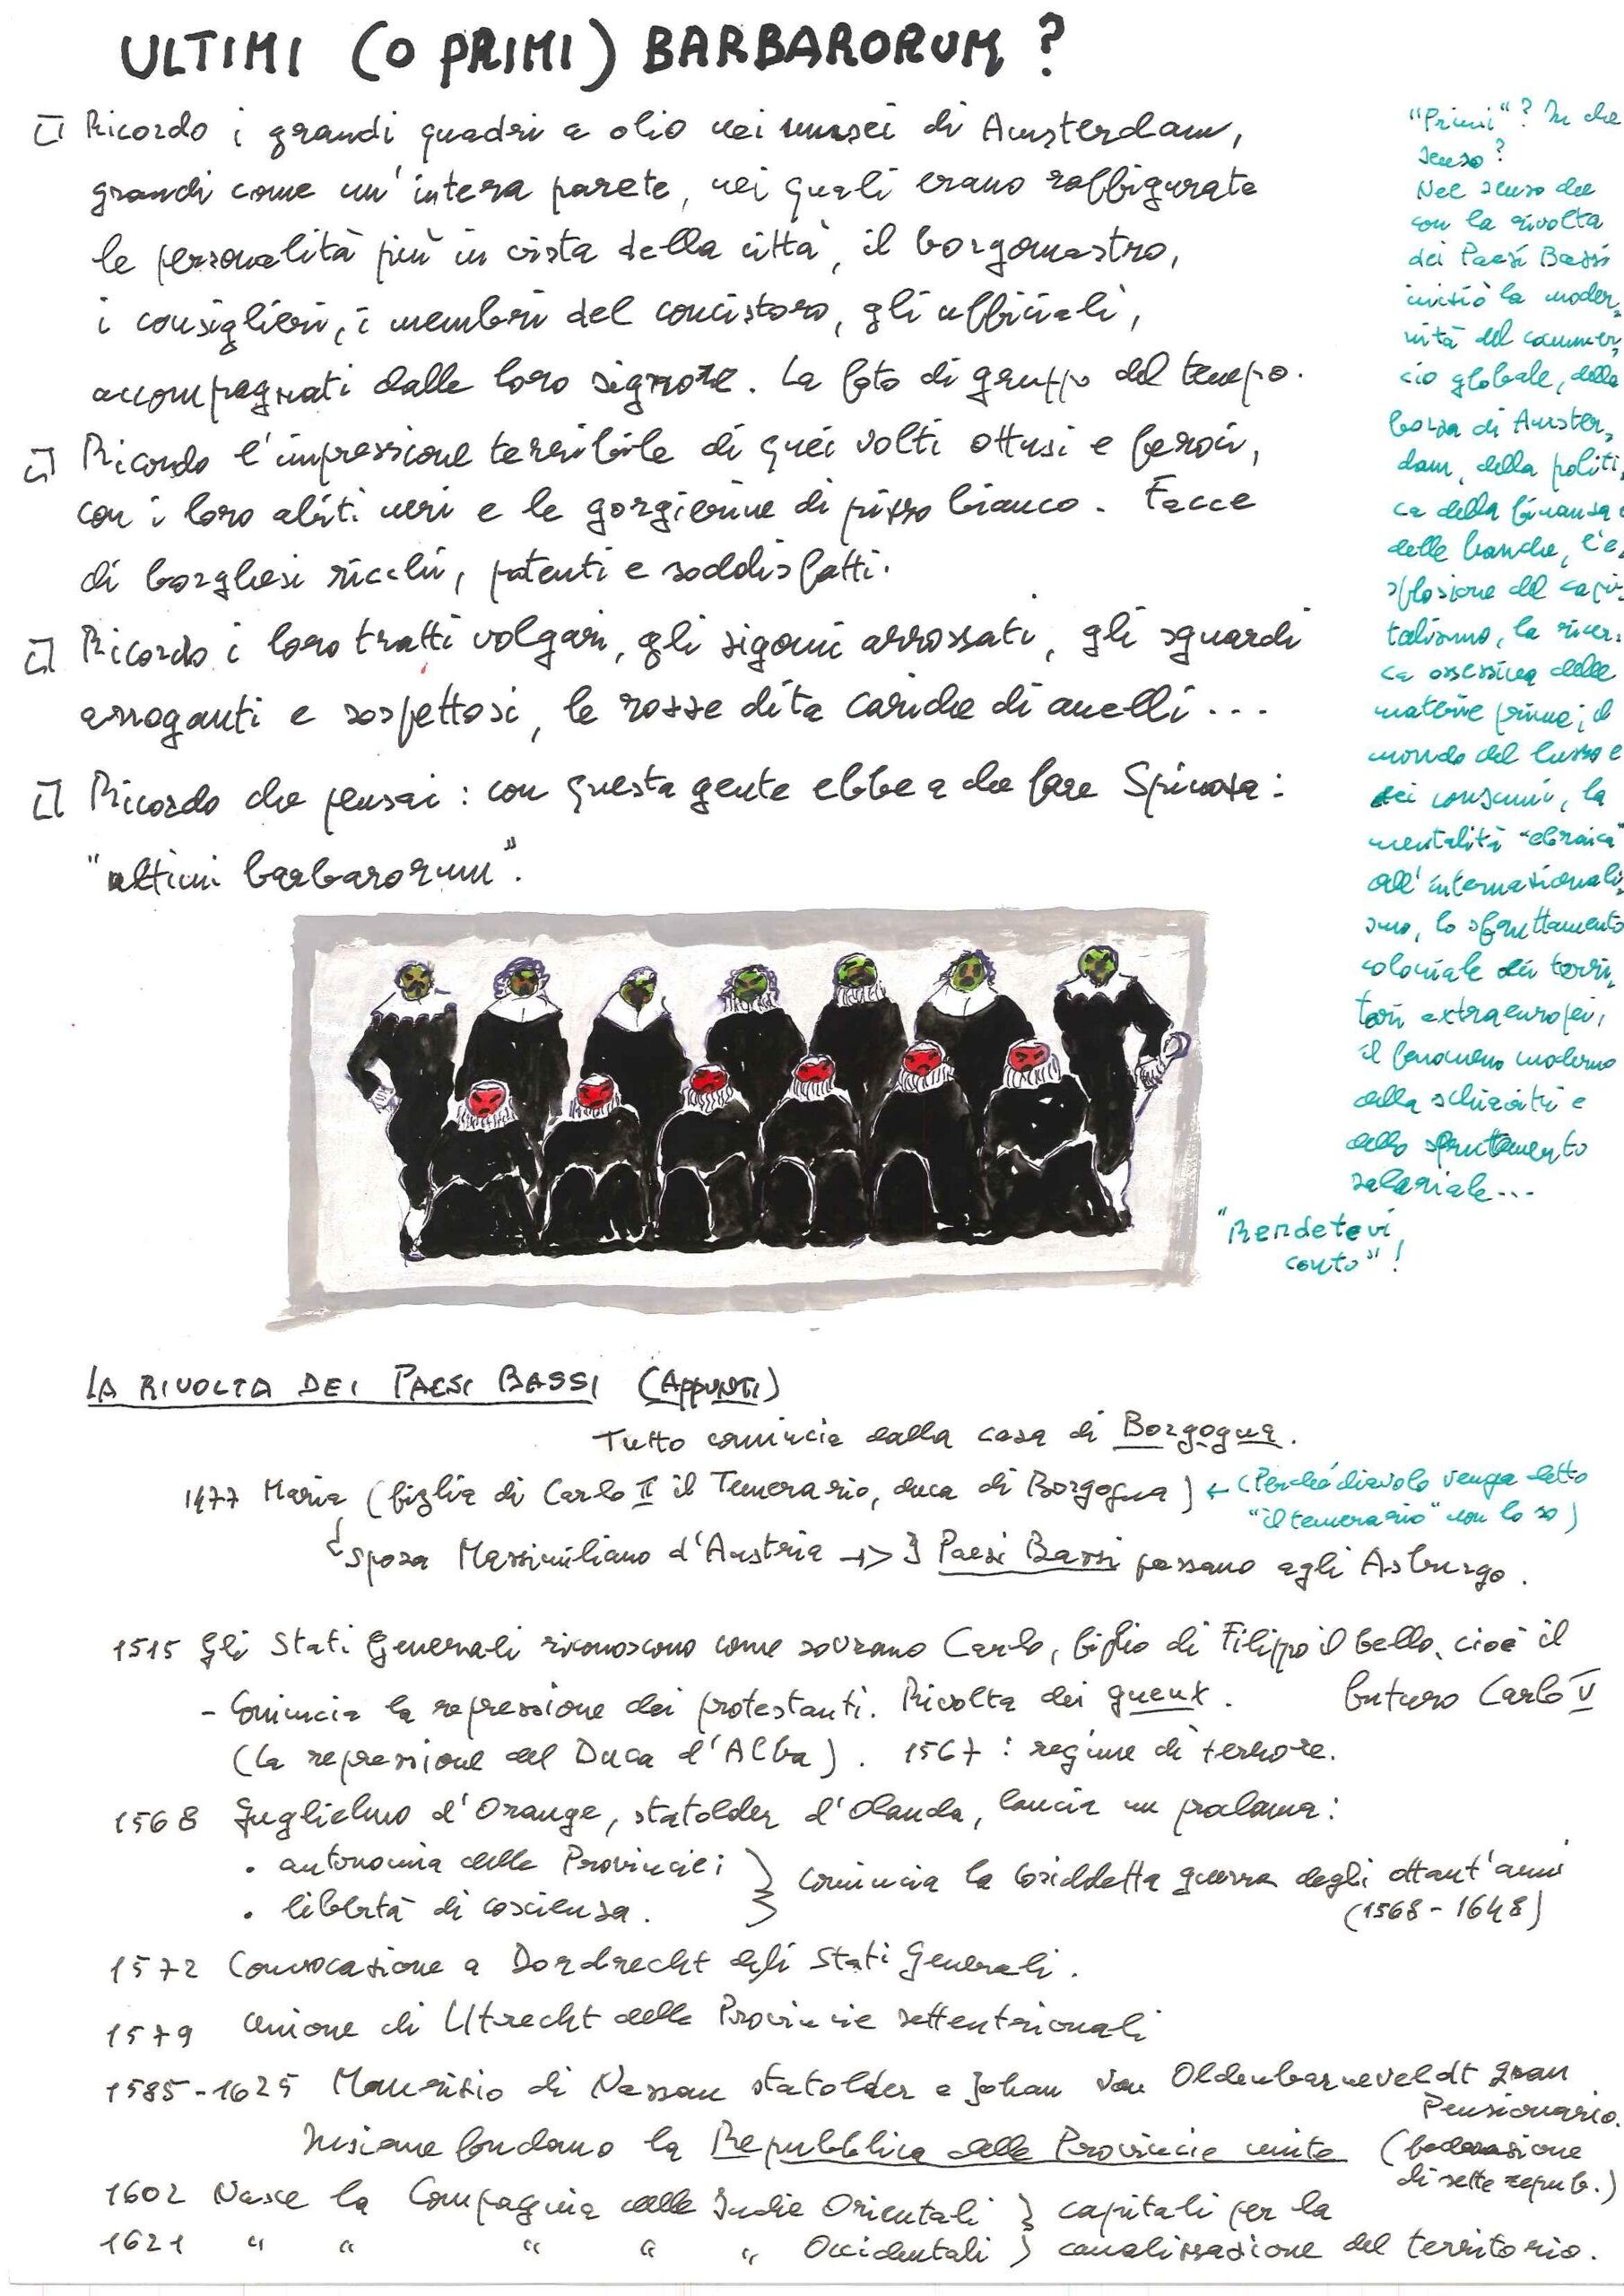 ULTIMI (O PRIMI) BARBARORUM?
Ricordo i grandi quadri a olio nei musei di Amsterdam,
grandi come un'intera parete, nei quali erano raffigurate
le personalità più in vista della città, il borgomastro,
i consiglieri, i membri del concistoro, gli ufficiali,
accompagnati dalle loro signore. La foto di gruppo del tempo.
Ricordo l'impressione terribile di quei volti ottusi e feroci,
con i loro abiti neri e le gorgierine di pizzo bianco. Facce
di borghesi ricchi, potenti e soddisfatti.
Ricordo i loro tratti volgari, gli zigomi arrossati, gli sguardi
arroganti e sospettosi, le rosse dita cariche di anelli...
Ricordo che pensai: con questa gente ebbe a che fare Spinoza:
"ultimi barbarorum".
"Primi"? In che
senso?
Nel senso che
con la rivolta
dei Paesi Bassi
iniziò la moder-
nità del commer-
cio globale, della
borsa di Amster-
dam, della politi-
ca della finanza e
delle banche, l'e-
splosione del capi-
talismo, la ricer-
ca ossessiva delle
materie prime; il
mondo del lusso e
dei consumi, la
mentalità "ebraica"
all'internazionali-
smo, lo sfruttamento
coloniale dei terri-
tori extraeuropei,
il fenomeno moderno
della schiavitù e
dello sfruttamento
salariale...
"Rendetevi
conto"!
LA RIVOLTA DEI PAESI BASSI (APPUNTI)
Tutto comincia dalla casa di Borgogna.
1477 Maria (figlia di Carlo II il Temerario, duca di Borgogna) ← (Perché diavolo venga detto
"il temerario" non lo so)
sposa Massimiliano d'Austria → I Paesi Bassi passano agli Asburgo.
1515 Gli Stati Generali riconoscono come sovrano Carlo, figlio di Filippo il bello, cioè il
futuro Carlo V
- Comincia la repressione dei protestanti. Rivolta dei gueux.
(la repressione del Duca d'Alba). 1567: regime di terrore.
1568 Guglielmo d'Orange, statolder d'Olanda, lancia un proclama:
• autonomia delle Provincie;
• libertà di coscienza.
} comincia la cosiddetta guerra degli ottant'anni
(1568-1648)
1572 Convocazione a Dordrecht degli Stati Generali.
1579 Unione di Utrecht delle Provincie settentrionali
1585-1625 Maurizio di Nassau statolder e Johan van Oldenbarneveldt gran
Pensionario.
Insieme fondano la Repubblica delle Provincie unite (federazione
di sette repub.)
1602 Nasce la Compagnia delle Indie Orientali } capitali per la
1621 " " " " " Occidentali } canalizzazione del territorio.